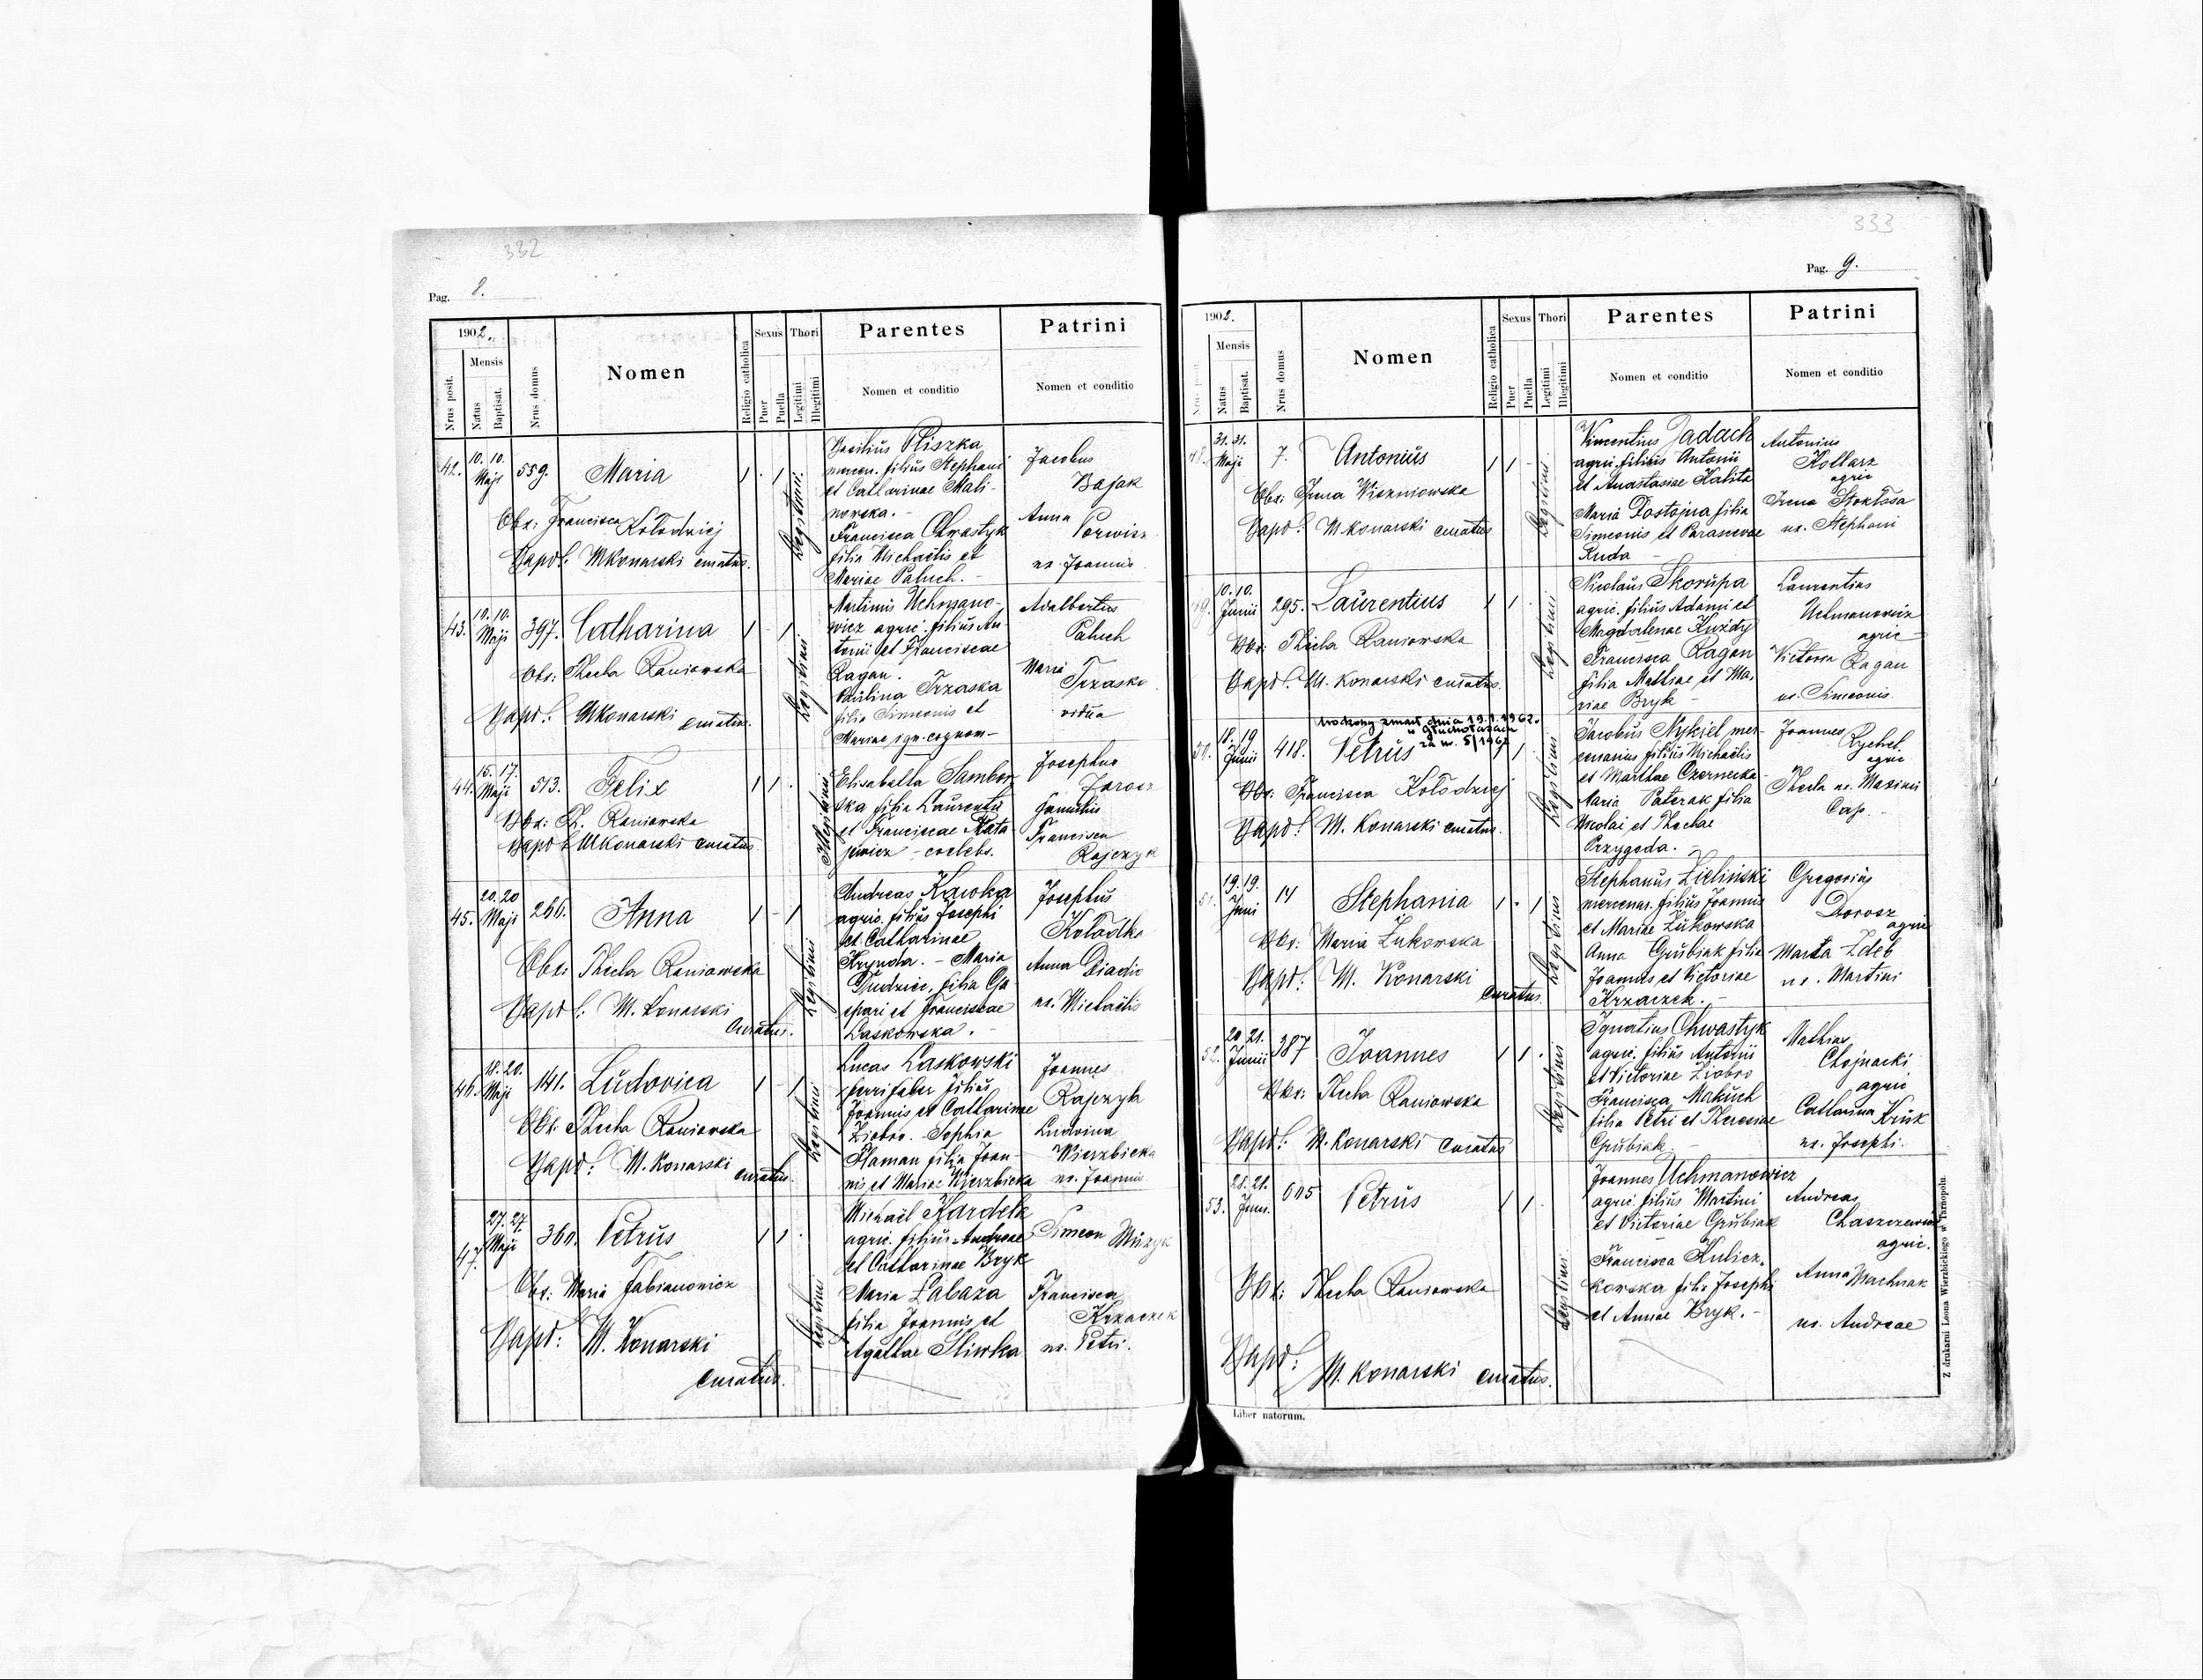 332
Pag. 8.
1902.
Mensis
Nrus posit.
Natus
Baptisat.
Nrus domus
Nomen
Religio catholica
Sexus
Puer
Puella
Thori
Legitimi
Illegitimi
Parentes
Nomen et conditio
Patrini
Nomen et conditio
42. 10. 10. Maji 559. Maria 1 · 1
Obs: Francisca Kołodziej
Bapt: M Konarski curatus.
Legitimi
Basilius Pliszka
mercen. filius Stephani
et Catharinae Mali-
nowska. -
Francisca Chwastyk
filia Michaelis et
Mariae Paluch. -
Jacobus
Bajak
Anna
ux. Joannis
43. 10. 10. Maji 397. Catharina 1 - 1
Obs: Thecla Raniowska
Bapt: M Konarski curatus.
Legitimi
Martinus Uchmano-
wicz agric. filius An-
tonii et Franciscae
Ragan.
Paulina Trzaska
filia Simeonis et
Mariae ign. cognom-
Adalbertus
Paluch
Maria
Trzaska
vidua
44. 15. 17. Maji 513. Felix 1 1 ·
Obs: Th. Raniowska
Bapt M Konarski curatus
Illegitimi
Elisabetha Sambor
ska filia Laurentii
et Franciscae Rata
jewicz - coelebs.
Josephus
Jarosz
famulus
Francisca
Rajczyk
45. 20. 20 Maji 266. Anna 1 - 1
Obs: Thecla Raniowska
Bapt: M. Konarski
curatus.
Legitimi
Andreas Kawka
agric. filius Josephi
et Catharinae
Krynda. - Maria
filia Ga
spari et Franciscae
Laskowska. -
Josephus
Kołodko
Anna Diadio
ux. Michaelis
46. 18. 20. Maji 141. Ludovica 1 - 1
Obs: Thecla Raniowska
Bapt: M. Konarski
curatus.
Legitimi
Lucas Laskowski
ferrifaber filius
Joannis et Catharinae
Ziobro. Sophia
Flaman filia Joan-
nis et Mariae Wierzbicka
Joannes
Rajczyk
Ludvina
Wierzbicka
ux. Joannis
47. 27. 27 Maji 360. Petrus 1 1 ·
Obs: Maria Fabianowicz
Bapt: M. Konarski
curatus.
Legitimi
Michael Kardela
agric. filius Andreae
et Catharinae Bryk
Maria Łabaza
filia Joannis et
Agathae Sliwka
Simeon Muzyk
Francisca
Krzaczek
ux. Petri.
333
Pag. 9.
1902.
Mensis
Natus
Baptisat.
Nrus domus
Nomen
Religio catholica
Sexus
Puer
Puella
Thori
Legitimi
Illegitimi
Parentes
Nomen et conditio
Patrini
Nomen et conditio
48. 31. 31. Maji 7. Antonius 1 1 -
Obs: Anna Wiszniowska
Bapt: M Konarski curatus
Legitimi
Vincentius Jadach
agric. filius Antonii
et Anastasiae Kalita
Maria Dostojna filia
Simeonis et Parascevae
Ruda -
Antonius
Kollarz
agric
Irena Stokłosa
ux. Stephani
49. 10. 10. Junii 295. Laurentius 1 1
Obs: Thecla Raniowska
Bapt: M. Konarski curatus.
Legitimi
Nicolaus Skorupa
agric. filius Adami et
Magdalenae Kużdy
Francisca Ragan
filia Mathiae et Ma
riae Bryk -
Laurentius
Uchmanowicz
agric -
Victoria Ragan
ux. Simeonis.
wrodzony zmarł dnia 19.1.1962.
w Głuchołazach
za nr. 5/1962
50. 18. 19 Junii 418. Petrus 1
Obs: Francisca Kołodziej
Bapt: M. Konarski curatus.
Legitimi
Jacobus Nykiel mer-
cenarius filius Michaelis
et Marthae Czernecka-
Maria Paterak filia
Nicolai et Theclae
Przygoda. -
Joannes
Rychel
agric
Thecla ux. Maximi
Cap. -
51. 19. 19. Juni 14 Stephania 1 · 1
Obs: Maria Żukowska
Bapt: M. Konarski
curatus.
Legitimi
Stephanus Zieliński
mercenar. filius Joannis
et Mariae Żukowska
Anna Grubiak filia
Joannis et Victoriae
Krzaczek. -
Gregorius
Dorosz
agric
Marta Zdeb
ux. Martini
52. 20 21. Junii 387 Joannes 1 1 ·
Obs: Thecla Raniowska
Bapt: M. Konarski curatus
Legitimi
Ignatius Chwastyk
agric. filius Antonii
et Victoriae Ziobro
Francisca Makuch
filia Petri et Theresiae
Grubiak -
Mathias
Chojnacki
agric
Catharina Kruk
ux. Josephi.
53. 28. 28. Juni. 605 Petrus 1 1 ·
Obs: Thecla Raniowska
Bapt:
M. Konarski curatus.
Legitimi
Joannes Uchmanowicz
agric. filius Martini
et Victoriae Grubiak
Francisca Kulicz,
kowska filia Josephi
et Annae Bryk. -
Andreas
Chaszczewicz
agric.
Anna Machnak
ux. Andreae
Liber natorum.
Z drukarni Leona Wierzbickiego w Tarnopolu.